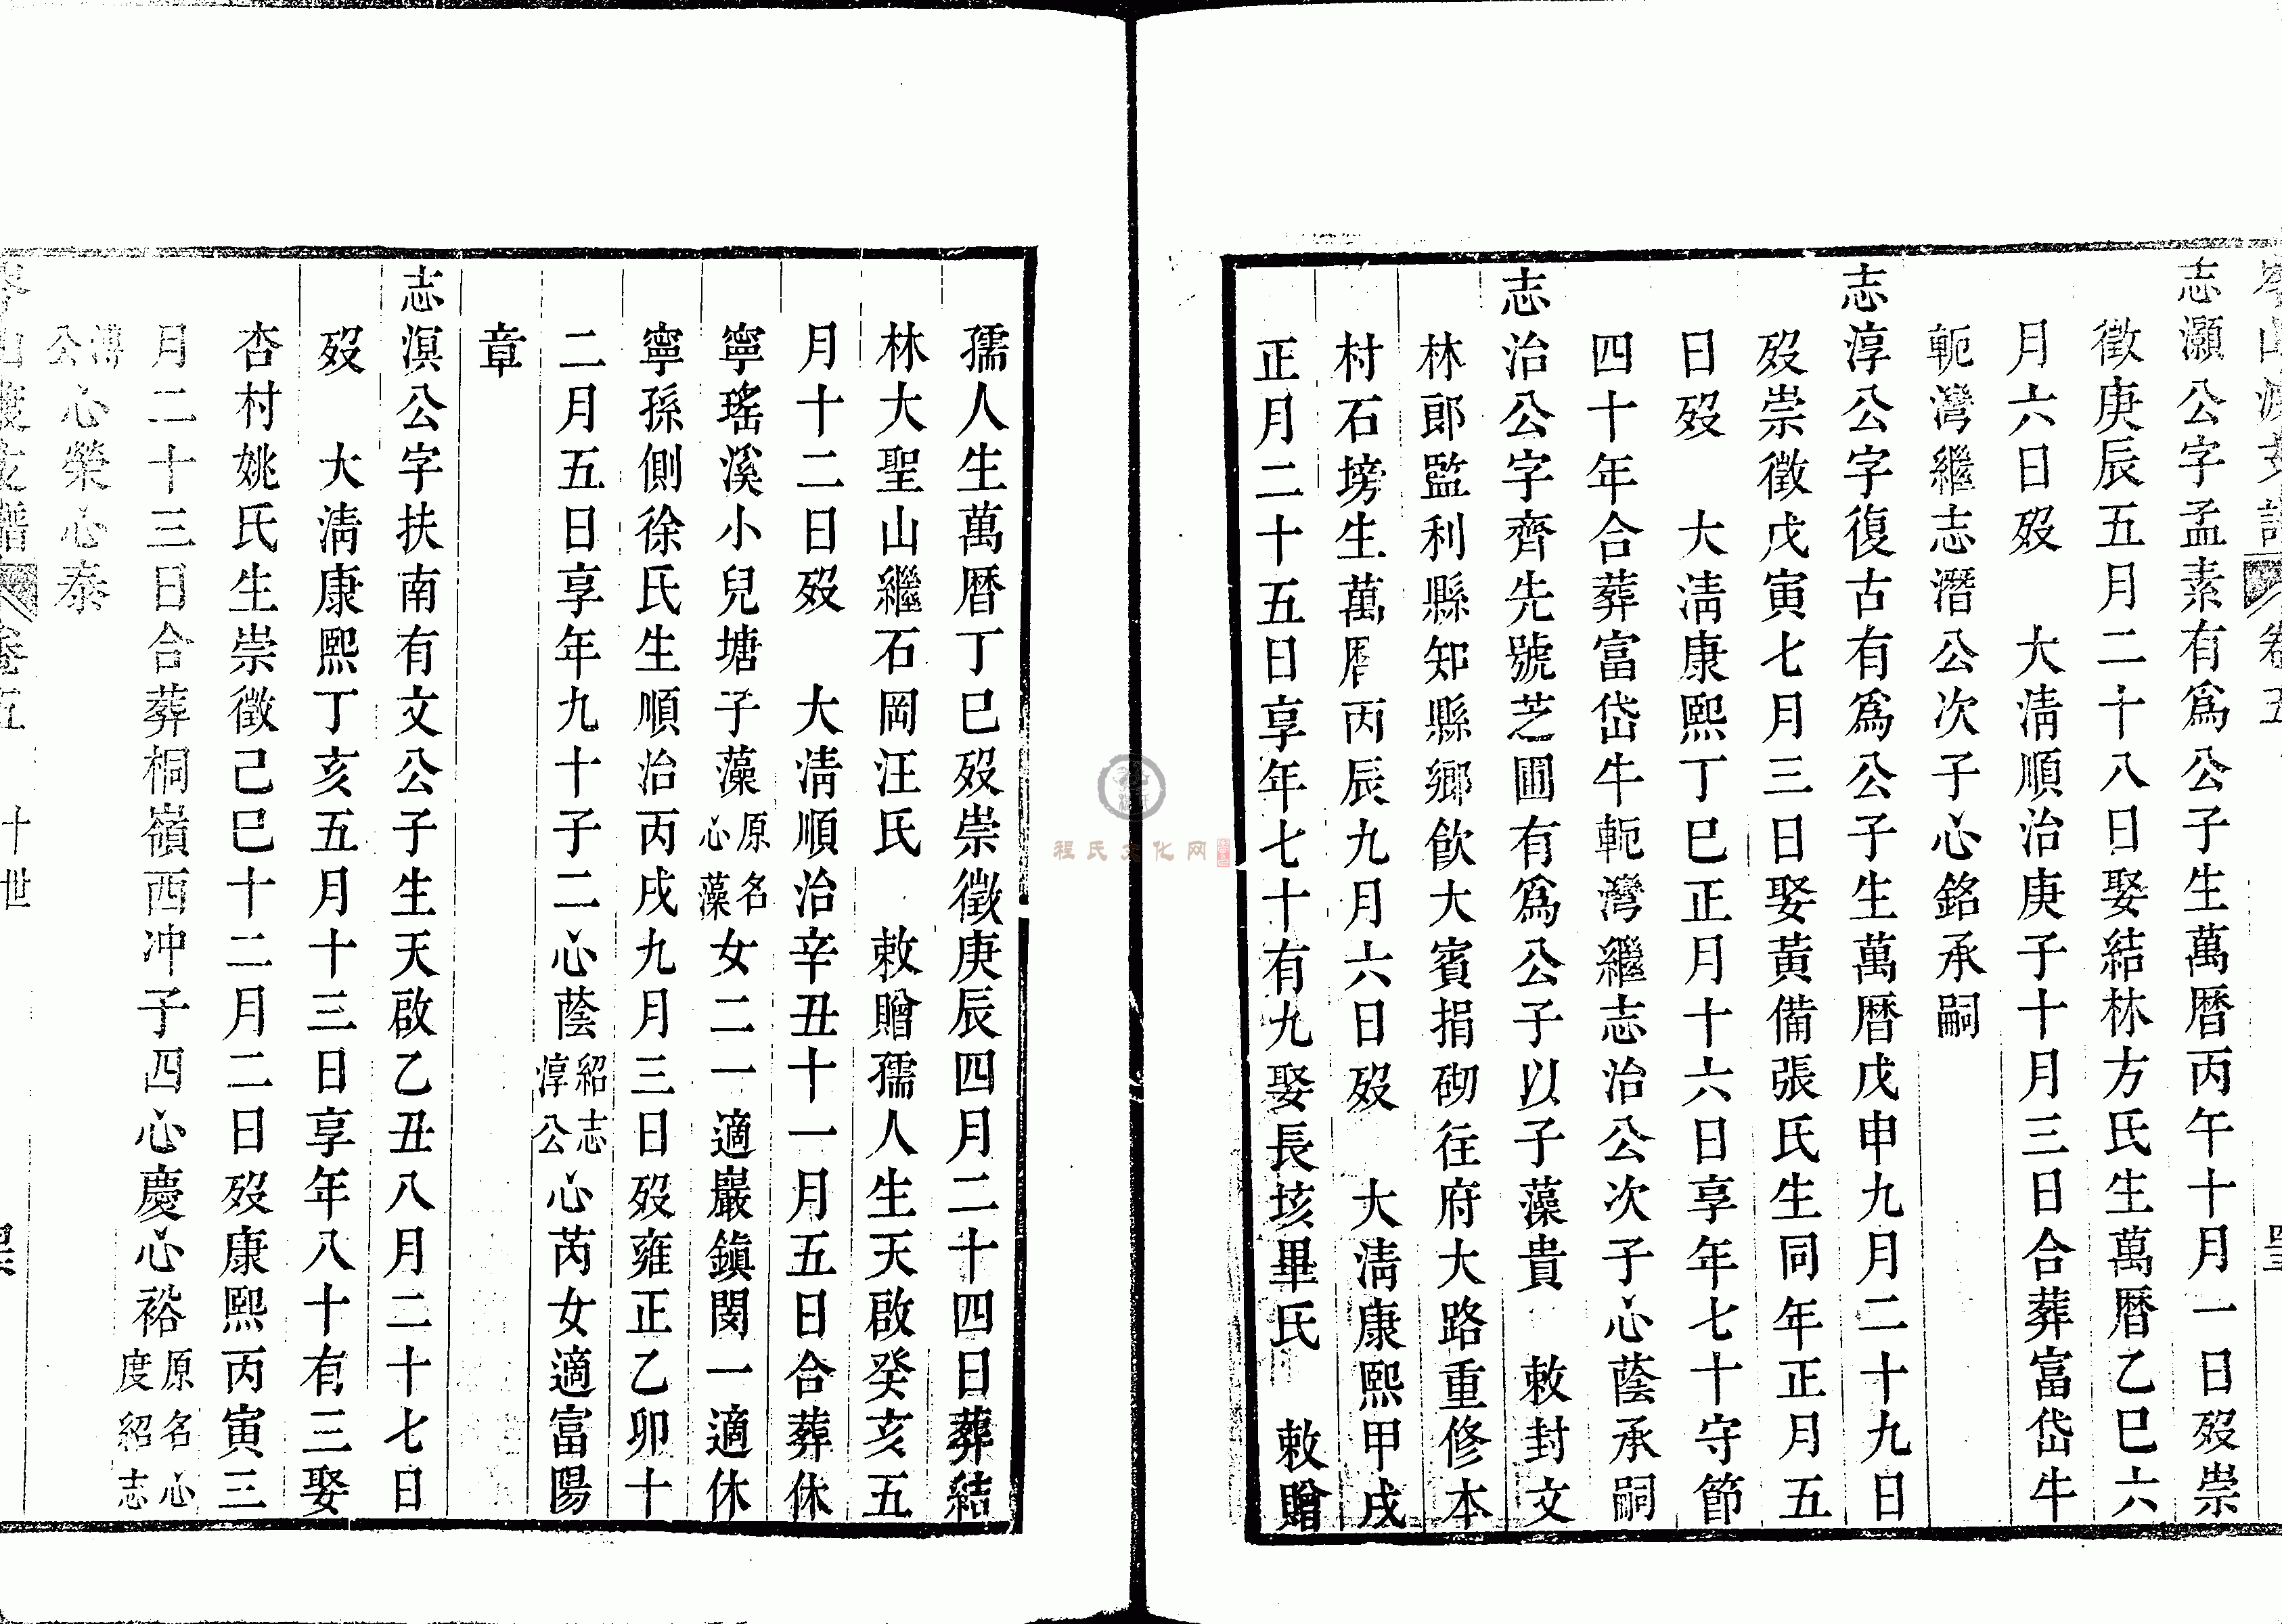 志灝公字孟素有爲公子生萬曆丙午十月一日歿崇
徵庚辰五月二十八日娶結林方氏生萬曆乙巳六
月六日歿　大淸順治庚子十月三日合葬富岱牛
軛灣繼志潛公次子心銘承嗣
志淳公字復古有爲公子生萬曆戊申九月二十九日
歿崇徵戊寅七月三日娶黃備張氏生同年正月五
日歿　大淸康熙丁巳正月十六日享年七十守節
四十年合葬富岱牛軛灣繼志治公次子心蔭承嗣
志治公字齊先號芝圃有爲公子以子藻貴　敕封文
林郎監利縣知縣鄉飲大賓捐砌往府大路重修本
村石塝生萬曆丙辰九月六日歿　大淸康熙甲戌
正月二十五日享年七十有九娶長垓畢氏　敕贈
孺人生萬曆丁巳歿崇徵庚辰四月二十四日葬結
林大聖山繼石岡汪氏　敕贈孺人生天啟癸亥五
月十二日歿　大淸順治辛丑十一月五日合葬休
寧瑤溪小兒塘子藻原名心藻女二一適巖鎭閔一適休
寧孫側徐氏生順治丙戌九月三日歿雍正乙卯十
二月五日享年九十子二心蔭紹志淳公心芮女適富陽
章
志溟公字扶南有文公子生天啟乙丑八月二十七日
歿　大淸康熙丁亥五月十三日享年八十有三娶
杏村姚氏生崇徵己巳十二月二日歿康熙丙寅三
月二十三日合葬桐嶺西冲子四心慶心裕原名心度紹志
溥公心榮心泰
卷五　十世
程氏文化网